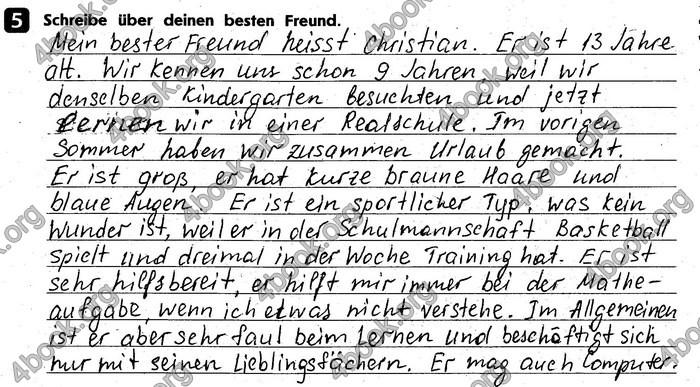 5 Schreibe über deinen besten Freund.
Mein bester Freund heisst Christian. Er ist 13 Jahre
alt. Wir kennen uns schon 9 Jahren, weil wir
denselben Kindergarten besuchten und jetzt
lernen wir in einer Realschule. Im vorigen
Sommer haben wir zusammen Urlaub gemacht.
Er ist groß, er hat kurze braune Haare und
blaue Augen. Er ist ein sportlicher Typ, was kein
Wunder ist, weil er in der Schulmannschaft Basketball
spielt und dreimal in der Woche Training hat. Er ist
sehr hilfsbereit, er hilft mir immer bei der Mathe-
aufgabe, wenn ich etwas nicht verstehe. Im Allgemeinen
ist er aber sehr faul beim Lernen und beschäftigt sich
nur mit seinen Lieblingsfächern. Er mag auch Computer-
4book.org